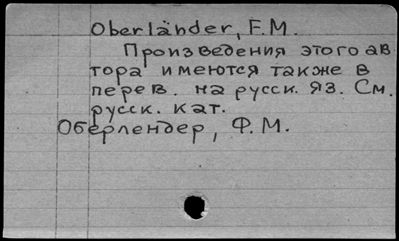 Oberländer, F.M.
Произведения этого ав
тора имеются также в
перев. на русск. яз. См.
русск. кат.
Оберлендер, Ф.М.